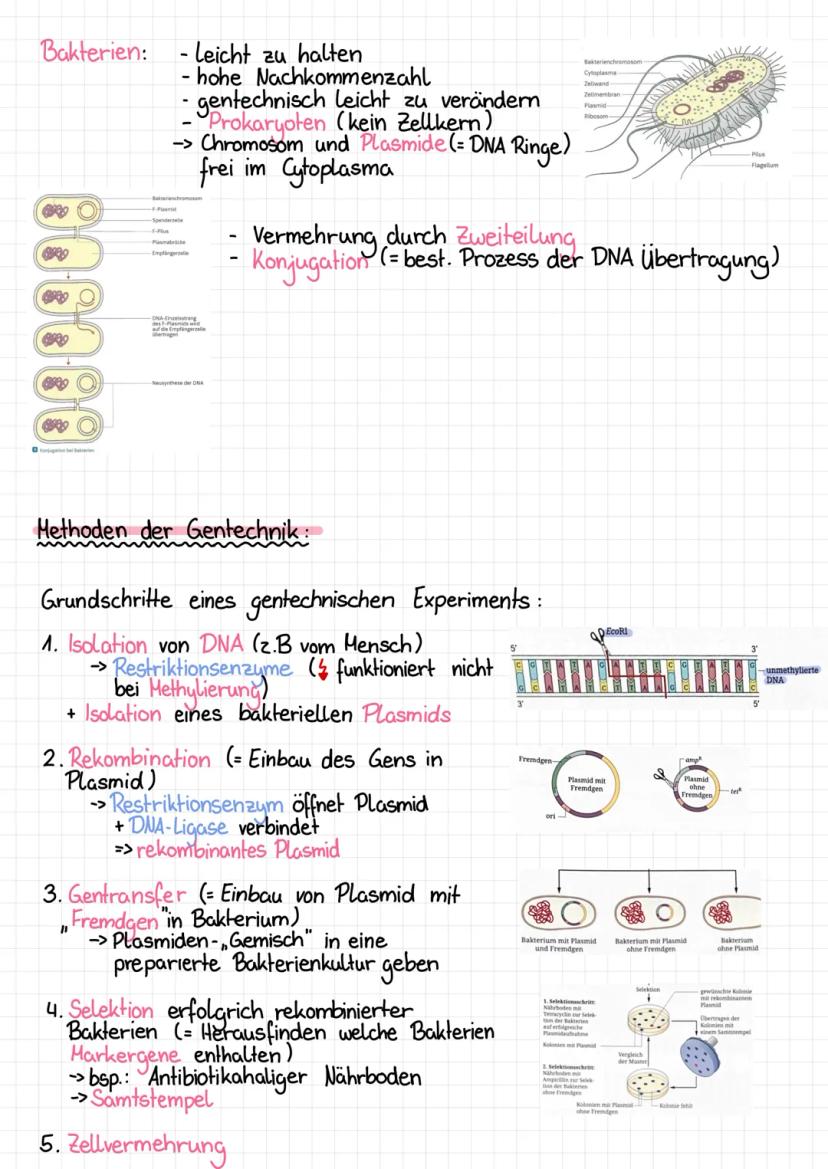 Bakterien:
- leicht zu halten
- hohe Nachkommenzahl
- gentechnisch leicht zu verändern
- Prokaryoten (kein Zellkern)
-> Chromosom und Plasmide (= DNA Ringe)
frei im Cytoplasma
Bakterienchromosom
Cytoplasma
Zellwand
Zellmembran
Plasmid
Ribosom
Pilus
Flagellum
Bakterienchromosom
F-Plasmid
Spenderzelle
F-Pilus
Plasmabrücke
Empfängerzelle
DNA-Einzelstrang
des F-Plasmids wird
auf die Empfängerzelle
übertragen
Neusynthese der DNA
Konjugation bei Bakterien
- Vermehrung durch Zweiteilung
- Konjugation (= best. Prozess der DNA Übertragung)
Methoden der Gentechnik:
Grundschritte eines gentechnischen Experiments:
1. Isolation von DNA (z.B vom Mensch)
-> Restriktionsenzyme (↯ funktioniert nicht
bei Methylierung)
+ Isolation eines bakteriellen Plasmids
EcoRI
5' 3'
C G T A T A G A A T T C G T A T A G
G C A T A T C T T A A G C A T A T C
3' 5'
unmethylierte
DNA
2. Rekombination (= Einbau des Gens in
Plasmid)
-> Restriktionsenzym öffnet Plasmid
+ DNA-Ligase verbindet
=> rekombinantes Plasmid
Fremdgen
Plasmid mit
Fremdgen
ori
ampR
Plasmid
ohne
Fremdgen
tetR
3. Gentransfer (= Einbau von Plasmid mit
„Fremdgen" in Bakterium)
-> Plasmiden-„Gemisch" in eine
preparierte Bakterienkultur geben
Bakterium mit Plasmid
und Fremdgen
Bakterium mit Plasmid
ohne Fremdgen
Bakterium
ohne Plasmid
4. Selektion erfolgrich rekombinierter
Bakterien (= Herausfinden welche Bakterien
Markergene enthalten)
-> bsp.: Antibiotikahaliger Nährboden
-> Samtstempel
Selektion
1. Selektionsschritt:
Nährboden mit
Tetracyclin zur Selek-
tion der Bakterien
auf erfolgreiche
Plasmidaufnahme
Kolonien mit Plasmid
gewünschte Kolonie
mit rekombinantem
Plasmid
Übertragen der
Kolonien mit
einem Samtstempel
Vergleich
der Muster
2. Selektionsschritt:
Nährboden mit
Ampicillin zur Selek-
tion der Bakterien
ohne Fremdgen
Kolonien mit Plasmid
ohne Fremdgen
Kolonie fehlt
5. Zellvermehrung